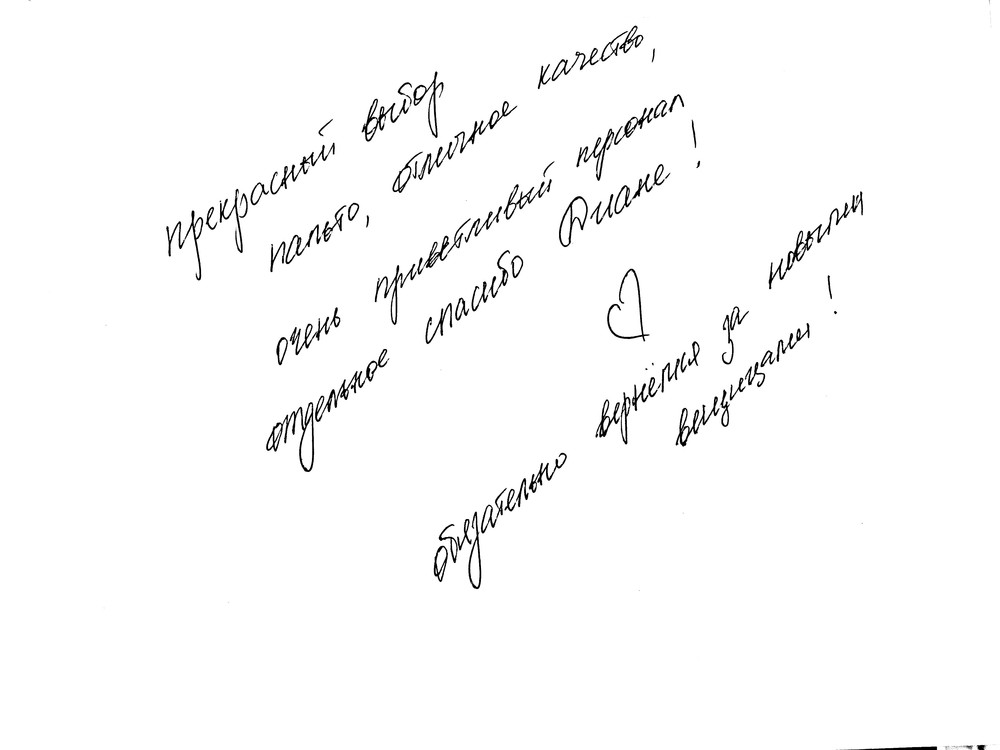 прекрасный выбор
пальто, отличное качество,
очень приветливый персонал
отдельное спасибо Диане!
обязательно вернёмся за новыми
вещицами!